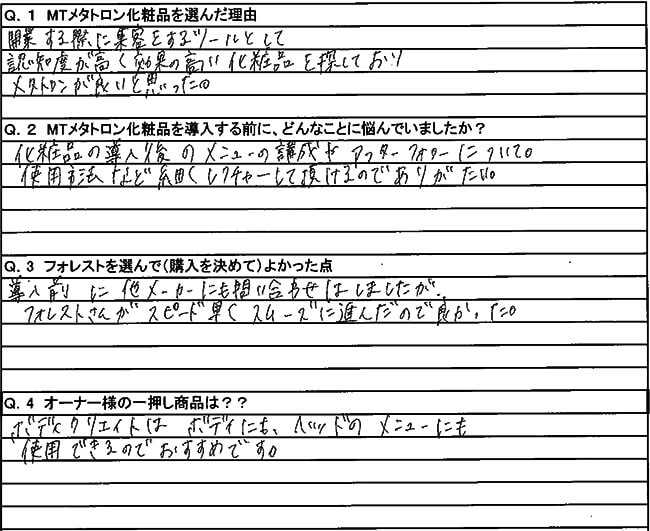 Q. 1 MTメタトロン化粧品を選んだ理由
開業する際に集客をするツールとして
認知度が高く効果の高い化粧品を探しており
メタトロンが良いと思った。
Q. 2 MTメタトロン化粧品を導入する前に、どんなことに悩んでいましたか？
化粧品の導入後のメニューの講成やアフターフォローについて。
使用方法など細くレクチャーして頂けるのでありがたい。
Q. 3 フォレストを選んで（購入を決めて）よかった点
導入前に他メーカーにも問い合わせはしましたが、
フォレストさんがスピード早くスムーズに進んだので良かった。
Q. 4 オーナー様の一押し商品は？？
ボディクリエイトはボディにも、ヘッドのメニューにも
使用できるのでおすすめです。